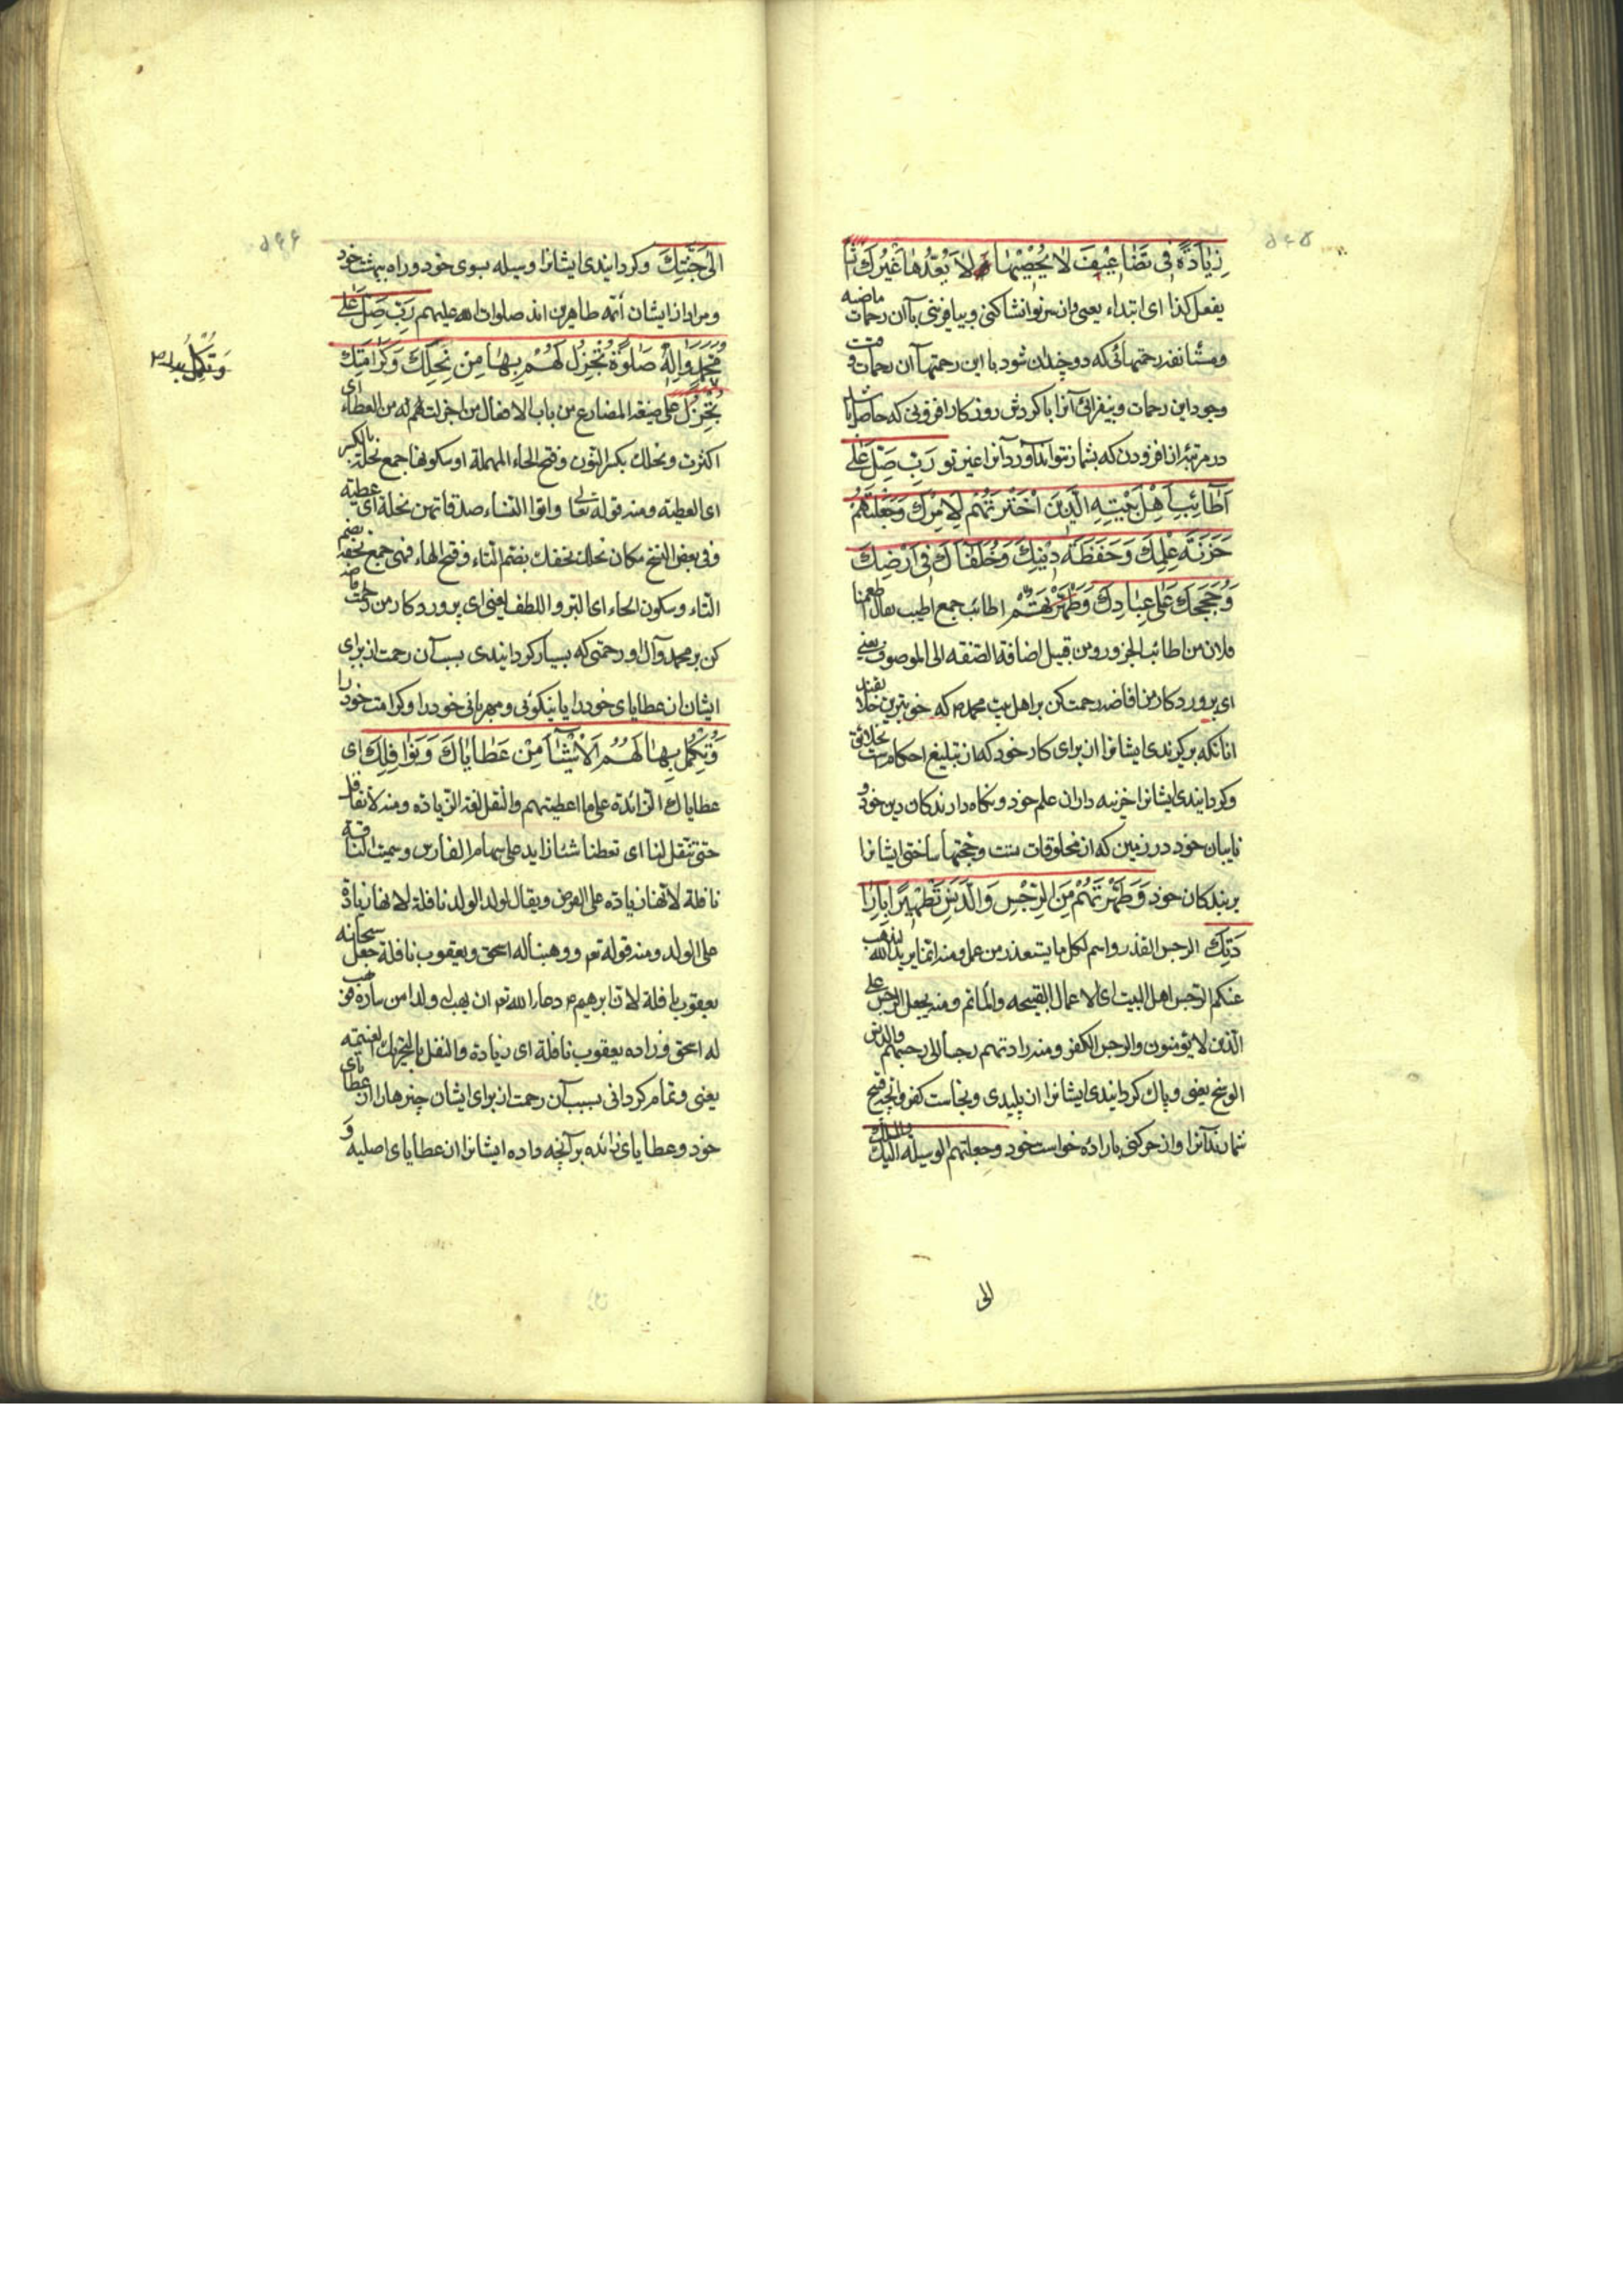 زِيٰادَةً فى تَضٰاعيفَ لا يُحْصيهٰا وَ لاٰ يَعُدُّهٰا غَيْرُكَ انشا
يفعل كذا اى ابتداء يعنى و از سر نو انشا كنى و بيافرينى با آن رحمات ماضيه
و مستانفه رحمتهائى كه دو چندان شود با اين رحمتها آن رحمات و
وجود اين رحمات و بيفزائى آنرا با گردش روزگار افزونى كه حاصل باشد
در مرتبه از افزودن كه بشمار نتواند آورد آنرا غير تو رَبِّ صَلِّ عَلىٰ
اَطٰائِبِ اَهْلِ بَيْتِهِ الَّذينَ اخْتَرْتَهُمْ لِاَمْرِكَ وَ جَعَلْتَهُمْ
خَزَنَةَ عِلْمِكَ وَ حَفَظَةَ دينِكَ وَ خُلَفٰآءَكَ فى اَرْضِكَ
وَ حُجَجَكَ عَلىٰ عِبٰادِكَ اطائب جمع اطيب يقال اطعمنا
فلان من اطائب الجزور و من قبيل اضافة الصفة الى الموصوف يعنى
اى پروردگار من افاضه رحمت كن بر اهل بيت محمد ص كه خوبترين خلايقند
آنانكه برگزيدى ايشانرا از براى كار خود كه آن تبليغ احكام است بخلائق
و گردانيدى ايشانرا خزينه داران علم خود و نگاه دارندگان دين خود و
نايبان خود در زمين كه آن مخلوقات تست و حجتها ساختى ايشانرا
بر بندگان خود وَ طَهَّرْتَهُمْ مِنَ الرِّجْسِ وَالدَّنَسِ تَطْهيرًا بِاِرٰا
دَتِكَ الرجس القذر و اسم لكل ما يستقذر من عمل و منه انما يريد الله ليذهب
عنكم الرجس اهل البيت اى الاعمال القبيحه و المآثم و منه يجعل الرجس على
الّذين لا يؤمنون و الرجس الكفر و منه زادتهم رجسا الى رجسهم و الدنس
الوسخ يعنى و پاك گردانيدى ايشانرا از پليدى و نجاست كفر و آنچه قبيح
شمارند آنرا و از چركنى باراده خواست خود و جعلتهم الوسيلة اليك
الى
الىٰ جَنَّتِكَ و گردانيدى ايشانرا وسيله بسوى خود و راه بهشت خود
و مراد از ايشان ائمه طاهرين اند صلوات الله عليهم رَبِّ صَلِّ عَلىٰ
مُحَمَّدٍ وَ اٰلِهِ صَلوٰةً تُجْزِلُ لَهُمْ بِهٰا مِنْ نِحَلِكَ وَ كَرٰامَتِكَ
تُجْزِلُ على صيغة المضارع من باب الافعال من اجزلت لهم له من العطاء اى
اكثرت و نحلك بكسر النون و فتح الحاء المهملة او سكونها جمع نحلة بالكسر
اى العطية و منه قوله تعالى و اتوا النساء صدقاتهن نحلة اى عطية
و فى بعض النسخ مكان نحلك تحفك بضم التاء و فتح الهاء فهى جمع تحفة بضم
التاء و سكون الحاء اى البر و اللطف يعنى اى پروردگار من افاضه رحمت
كن بر محمد و آل او رحمتى كه بسيار گردانيدى بسبب آن رحمت از براى
ايشان از عطاياى خود را يا نيكوئى و مهربانى خود را و كرامت خود را
وَ تُكْمِلُ بِهٰا لَهُمُ الْاَشْيٰآءَ مِنْ عَطٰايٰاكَ وَ نَوٰافِلِكَ اى
عطاياك الزائدة على ما اعطيتهم و النفل لغة الزيادة و منه لا نقاتل
حتى تنفل لنا اى تعطنا شيئا زايد على سهام الفارس و سميت النافلة
نافلة لانها زيادة على الفرض و يقال لولد الولد نافلة لانها زيادة
على الولد و منه قوله تع و وهبنا له اسحق و يعقوب نافلة جعل سبحانه
يعقوب نافلة لان ابرهيم ع دعا الله تع ان يهب له ولدا من ساره فوهب
له اسحق و زاده يعقوب نافلة اى زيادة و النفل بالتحريك الغنيمه
يعنى و تمام گردانى بسبب آن رحمت از براى ايشان چيزها را از عطاياى
خود و عطاياى زائده بر آنچه داده ايشانرا از عطاياى اصليه و
وَ تُكْمِلُ